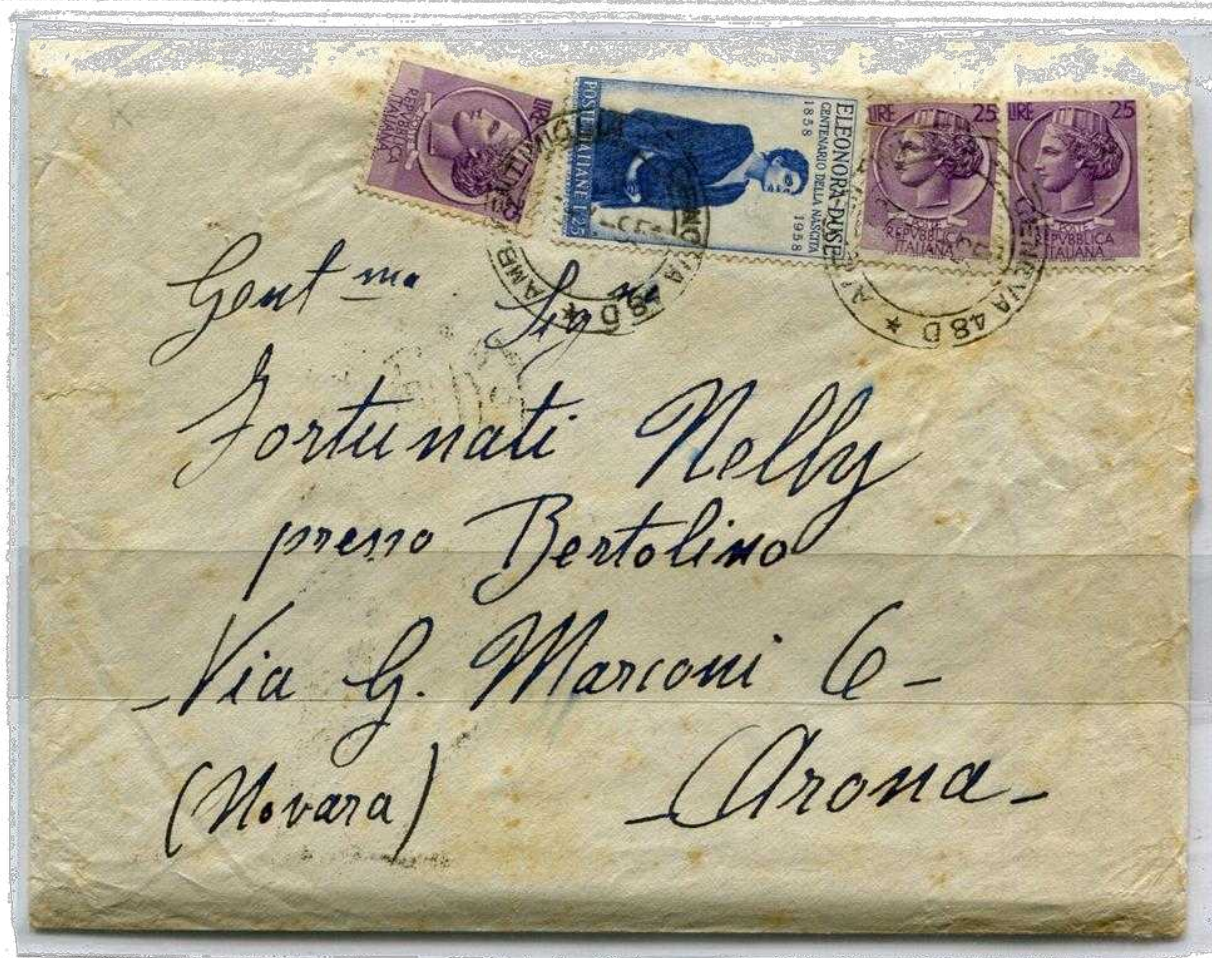 LIRE 25
REPVBBLICA
ITALIANA
POSTE ITALIANE L. 25
ELEONORA DUSE
CENTENARIO DELLA NASCITA
1858 1958
LIRE 25
POSTE
REPVBBLICA
ITALIANA
LIRE 25
POSTE
REPVBBLICA
ITALIANA
AMB. VENTIMIGLIA GENOVA 48D ★
GENOVA 48D ★
Gent ma Sig na
Fortunati Nelly
presso Bertolino
- Via G. Marconi 6 -
(Novara) - Arona -